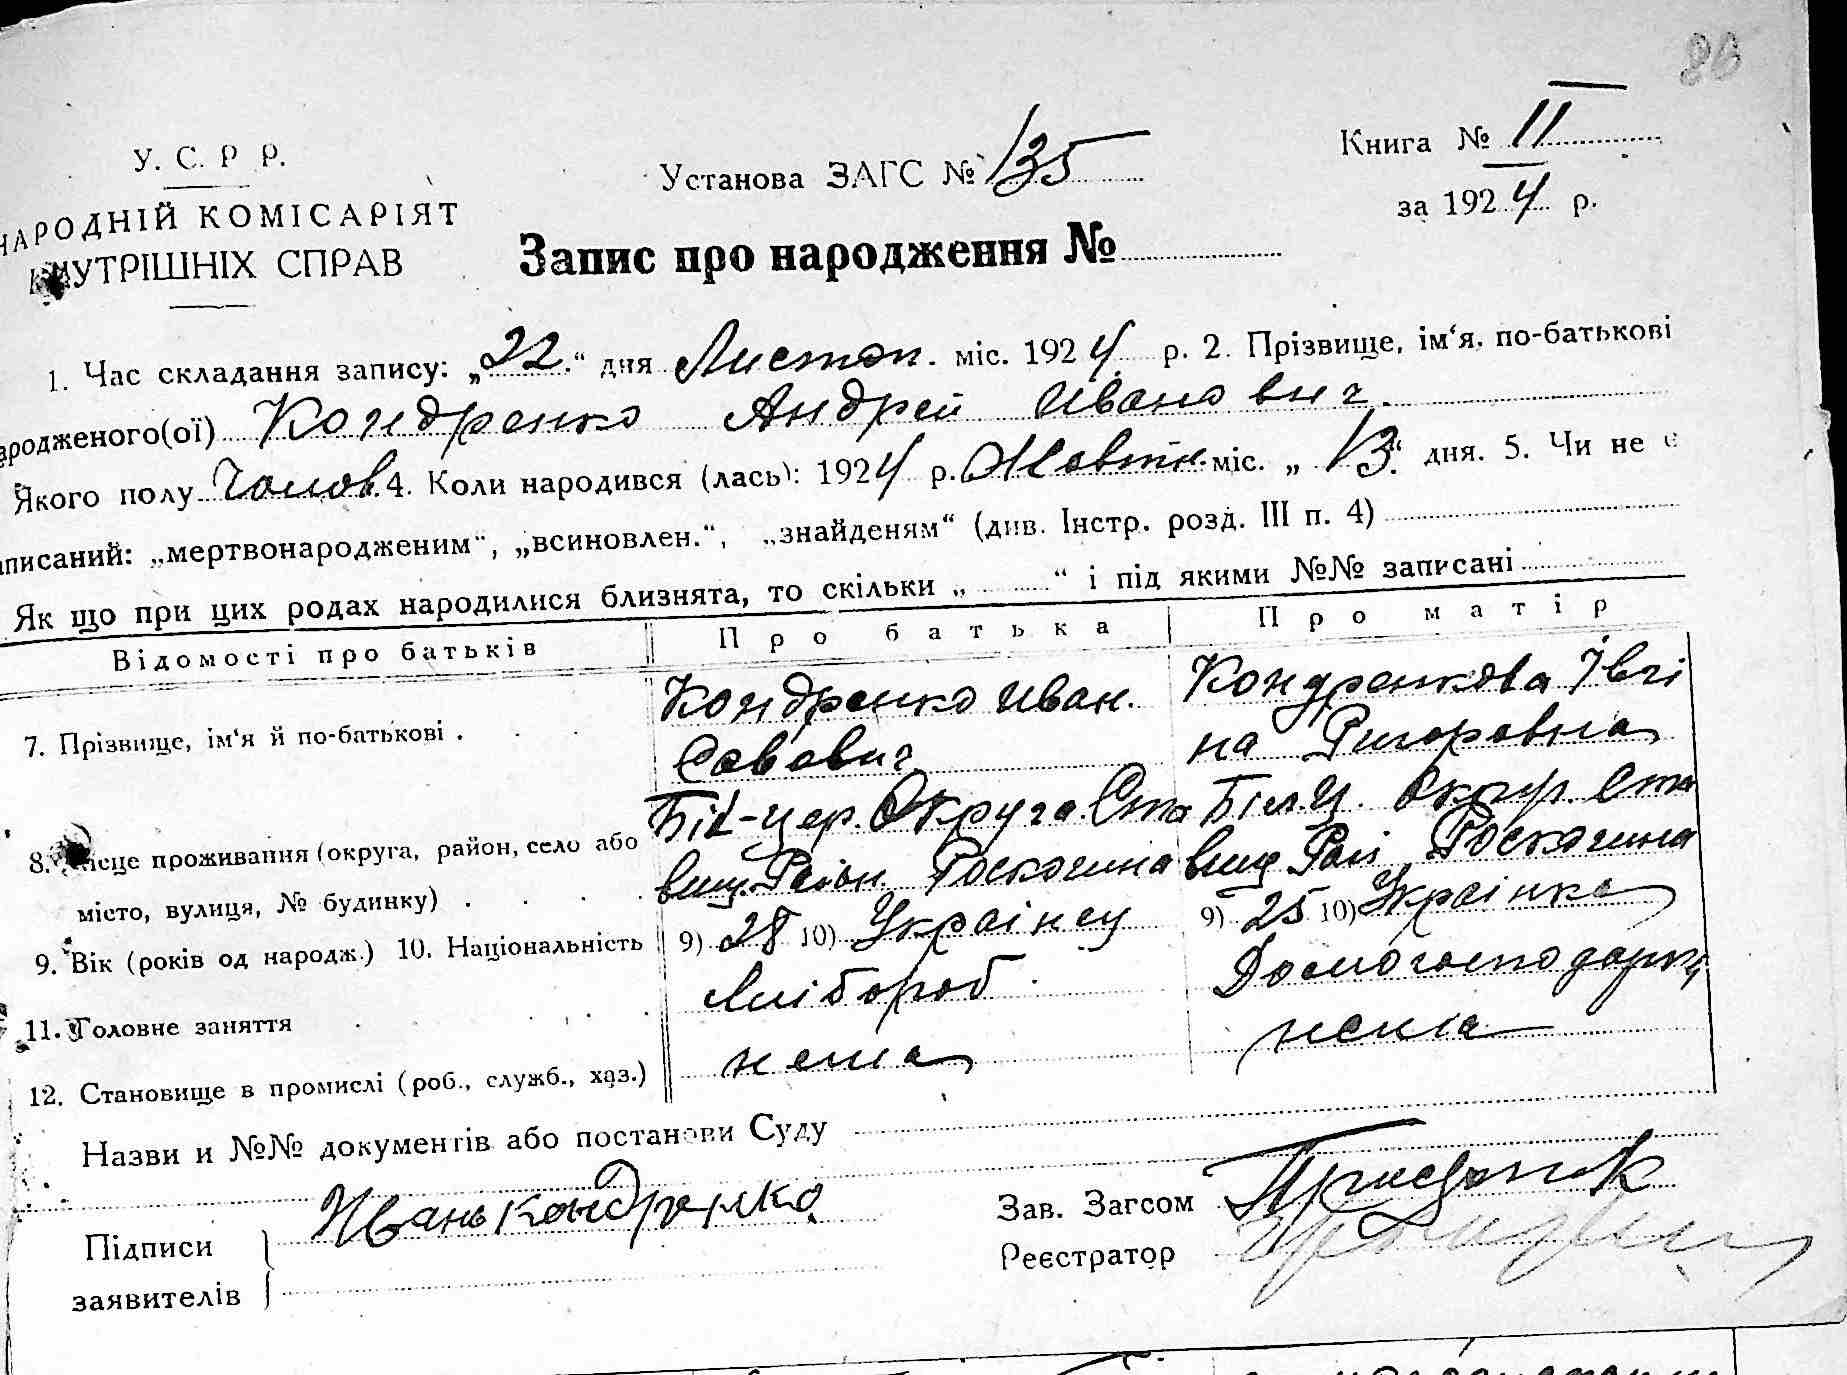 80
У. С. Р Р.
НАРОДНІЙ КОМІСАРІЯТ
ВНУТРІШНІХ СПРАВ
Установа ЗАГС № 135
Книга № 11
за 1924 р.
Запис про народження №
1. Час складання запису: „22“ дня Листоп. міс. 1924 р. 2. Прізвище, ім‘я, по-батькові
ародженого(ої) Кондренко Андрей Иванович.
Якого полу Чолов. 4. Коли народився (лась): 1924 р. Жовтн. міс. „13“ дня. 5. Чи не є
аписаний: „мертвонародженим“, „всиновлен.“, „знайденям“ (див. Інстр. розд. III п. 4)
Як що при цих родах народилися близнята, то скільки „ “ і під якими №№ записані
Відомості про батьків Про батька Про матір
7. Прізвище, ім‘я й по-батькові . Кондренко Иван. Кондренкова Івгі
Савович на Ригоровна
8. Місце проживання (округа, район, село або Біл-цер. Округа. Ста Біл.Ц. Округ. Ста
місто, вулиця, № будинку) . вищ. Район Роскочина вищ Рай Роскочина
9. Вік (років од народж.) 10. Національність 9) 28 10) Украінец 9) 25 10) Украінка
11. Головне заняття Хлібороб. Домогосподарка
12. Становище в промислі (роб., служб., хаз.) нема нема
Назви и №№ документів або постанови Суду
Підписи Ивань кондренко
заявителів
Зав. Загсом
Реєстратор